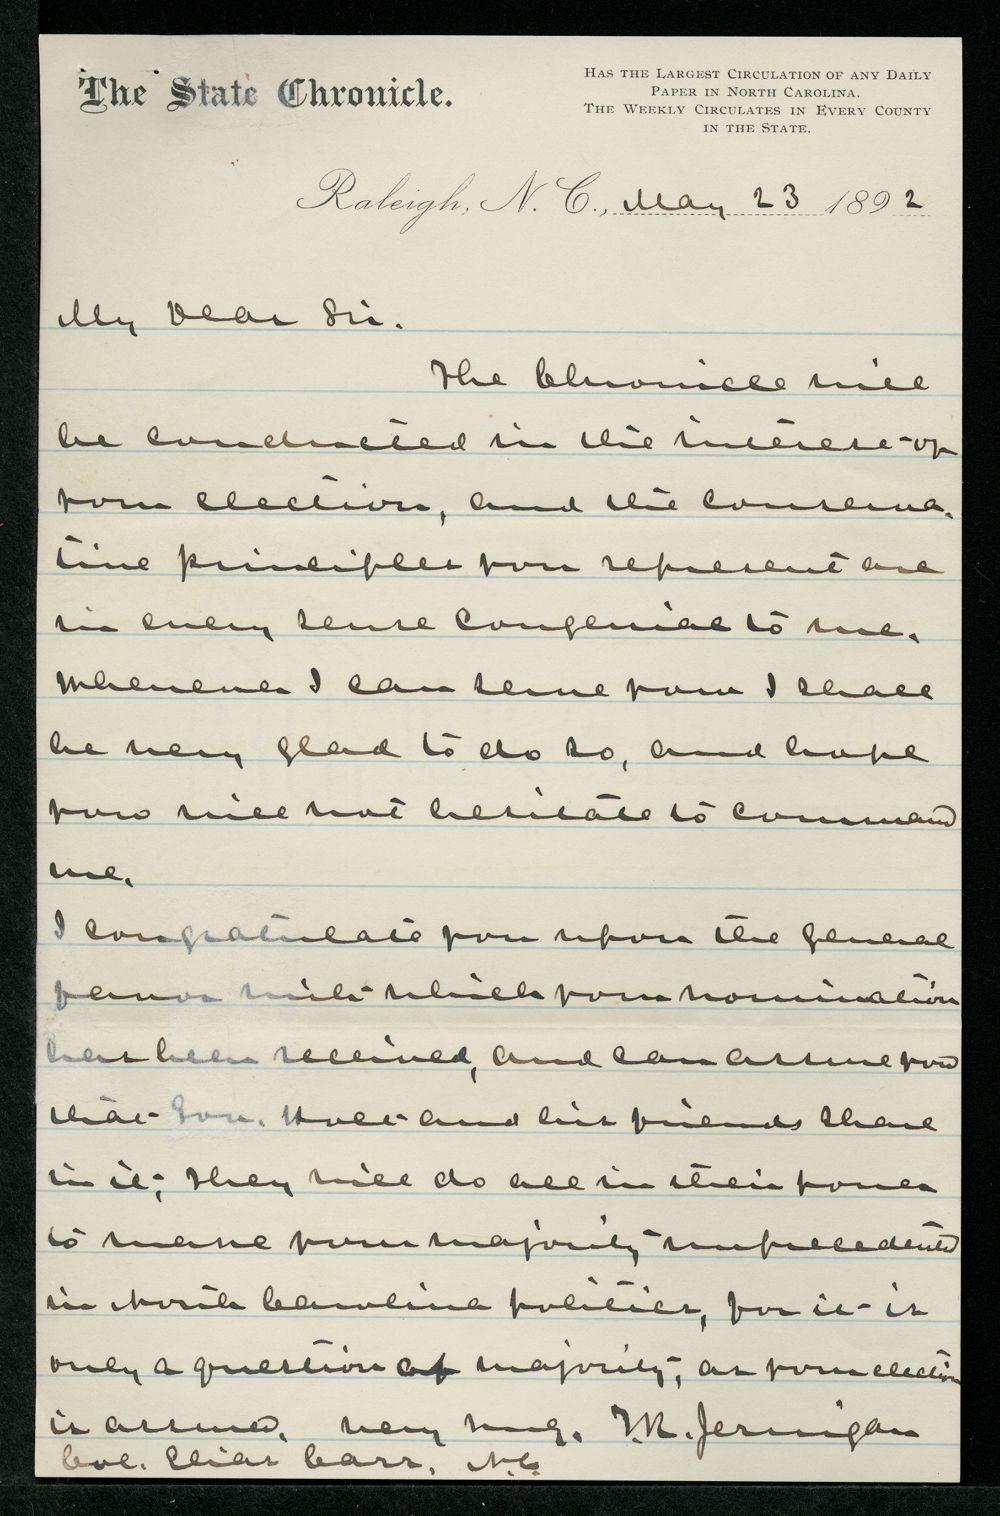 The State Chronicle.
HAS THE LARGEST CIRCULATION OF ANY DAILY
PAPER IN NORTH CAROLINA.
THE WEEKLY CIRCULATES IN EVERY COUNTY
IN THE STATE.
Raleigh, N. C., May 23 1892
My Dear Sir.
The Chronicle will
be conducted in the interest of
your election, and the conserva-
tive principles you represent are
in every sense congenial to me.
Whenever I can serve you I shall
be very glad to do so, and hope
you will not hesitate to command
me.
I congratulate you upon the general
favor with which your nomination
has been received, and can assure you
that Gov. Holt and his friends share
in it; they will do all in their power
to make your majority unprecedented
in North Carolina politics, for it is
only a question of majority, as your election
is assured. Very truly. T.R. Jernigan
Col. Elias Carr, N.C.